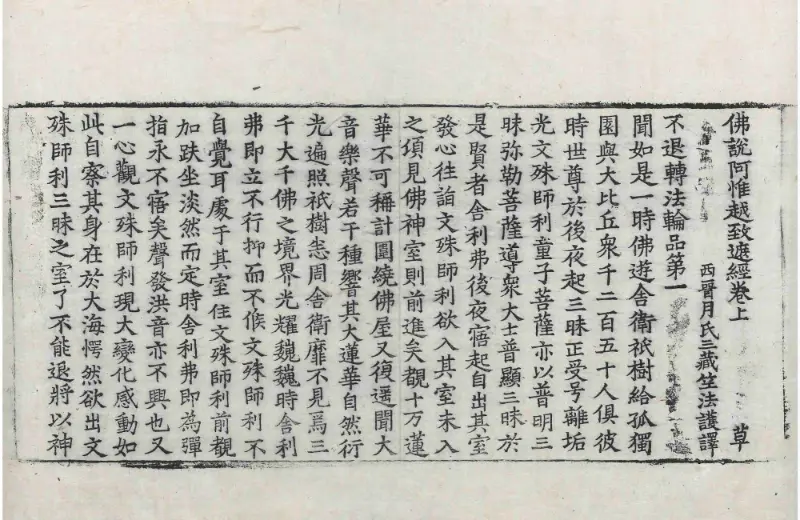 佛說阿惟越致遮經卷上　草
西晉月氏三藏竺法護譯
不退轉法輪品第一
聞如是一時佛遊舍衛祇樹給孤獨
園與大比丘衆千二百五十人俱彼
時世尊於後夜起三昧正受号離垢
光文殊師利童子菩薩亦以普明三
昧弥勒菩薩導衆大士普顯三昧於
是賢者舍利弗後夜寤起自出其室
發心往詣文殊師利欲入其室未入
之頃見佛神室則前進矣覩十万蓮
華不可稱計圍繞佛屋又復遥聞大
音樂聲若干種響其大蓮華自然衍
光遍照祇樹悉周舍衛靡不見焉三
千大千佛之境界光耀巍巍時舍利
弗即立不行抑而不候文殊師利不
自覺耳處于其室住文殊師利前覩
加趺坐淡然而定時舍利弗即為彈
指永不寤矣聲發洪音亦不興也又
一心觀文殊師利現大變化感動如
此自察其身在於大海愕然欲出文
殊師利三昧之室了不能退將以神